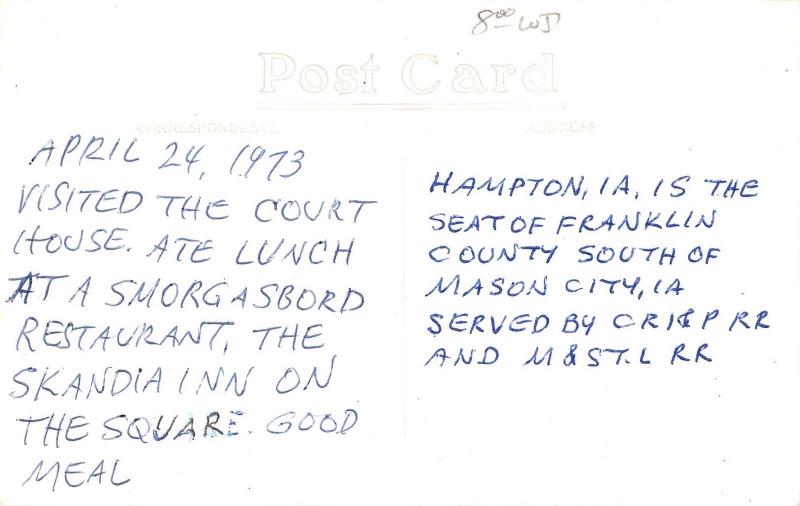 8.00 WJ
Post Card
CORRESPONDENCE
ADDRESS
APRIL 24, 1973
VISITED THE COURT
HOUSE. ATE LUNCH
AT A SMORGASBORD
RESTAURANT, THE
SKANDIA INN ON
THE SQUARE. GOOD
MEAL
HAMPTON, IA, IS THE
SEAT OF FRANKLIN
COUNTY SOUTH OF
MASON CITY, IA
SERVED BY CRI&P RR
AND M & ST. L RR